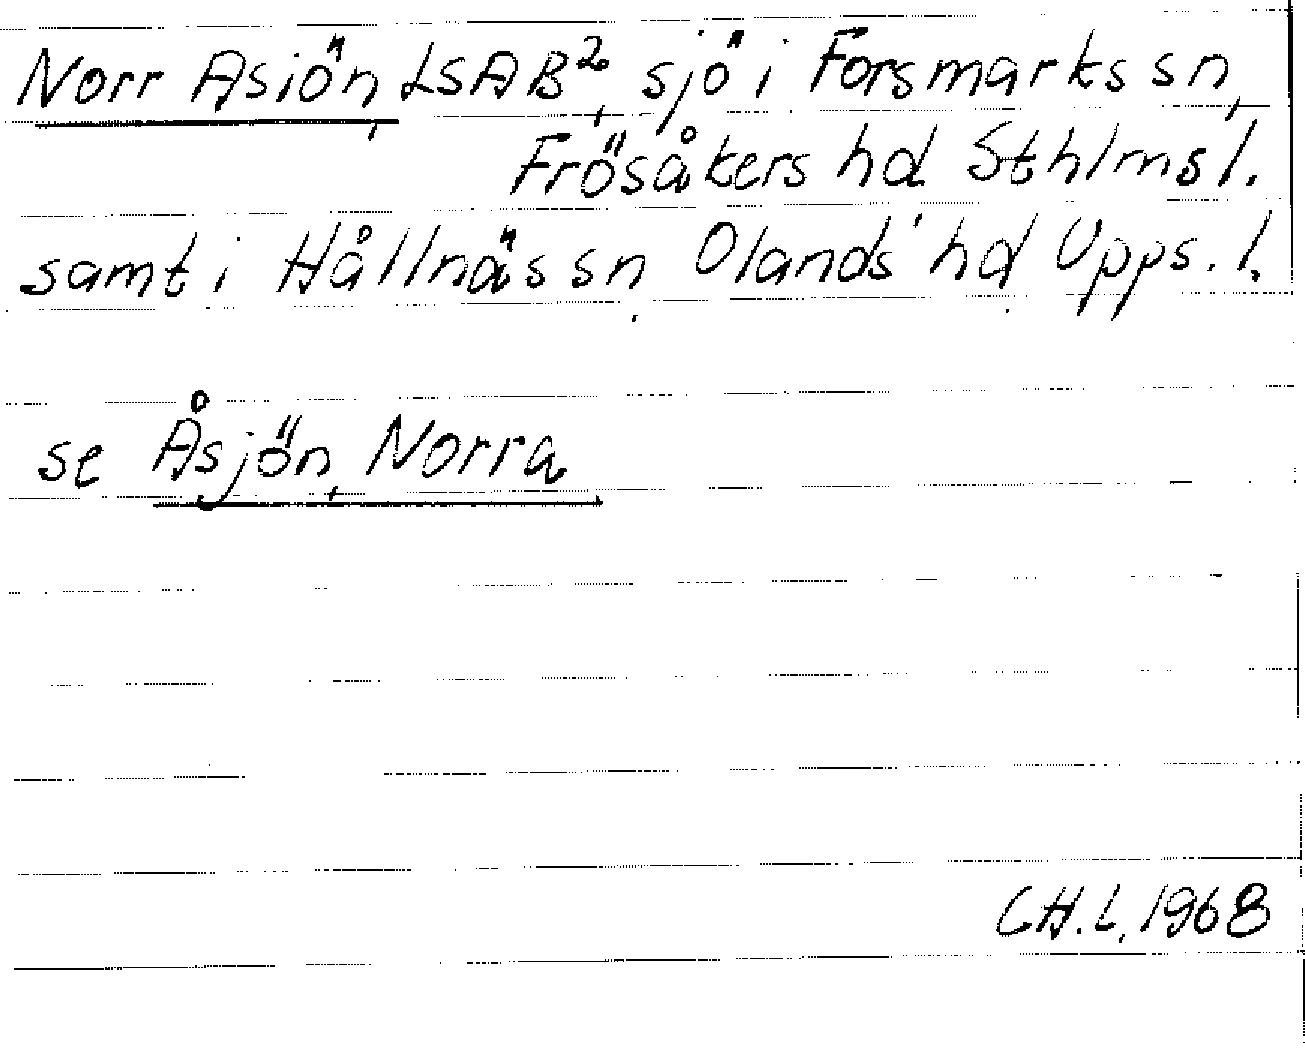 Norr Asiön, LSAB², sjö i Forsmarks sn,
Frösåkers hd Sthlms l.
samt i Hållnäs sn, Olands hd Upps. l.
se Åsjön, Norra
CH.L. 1968